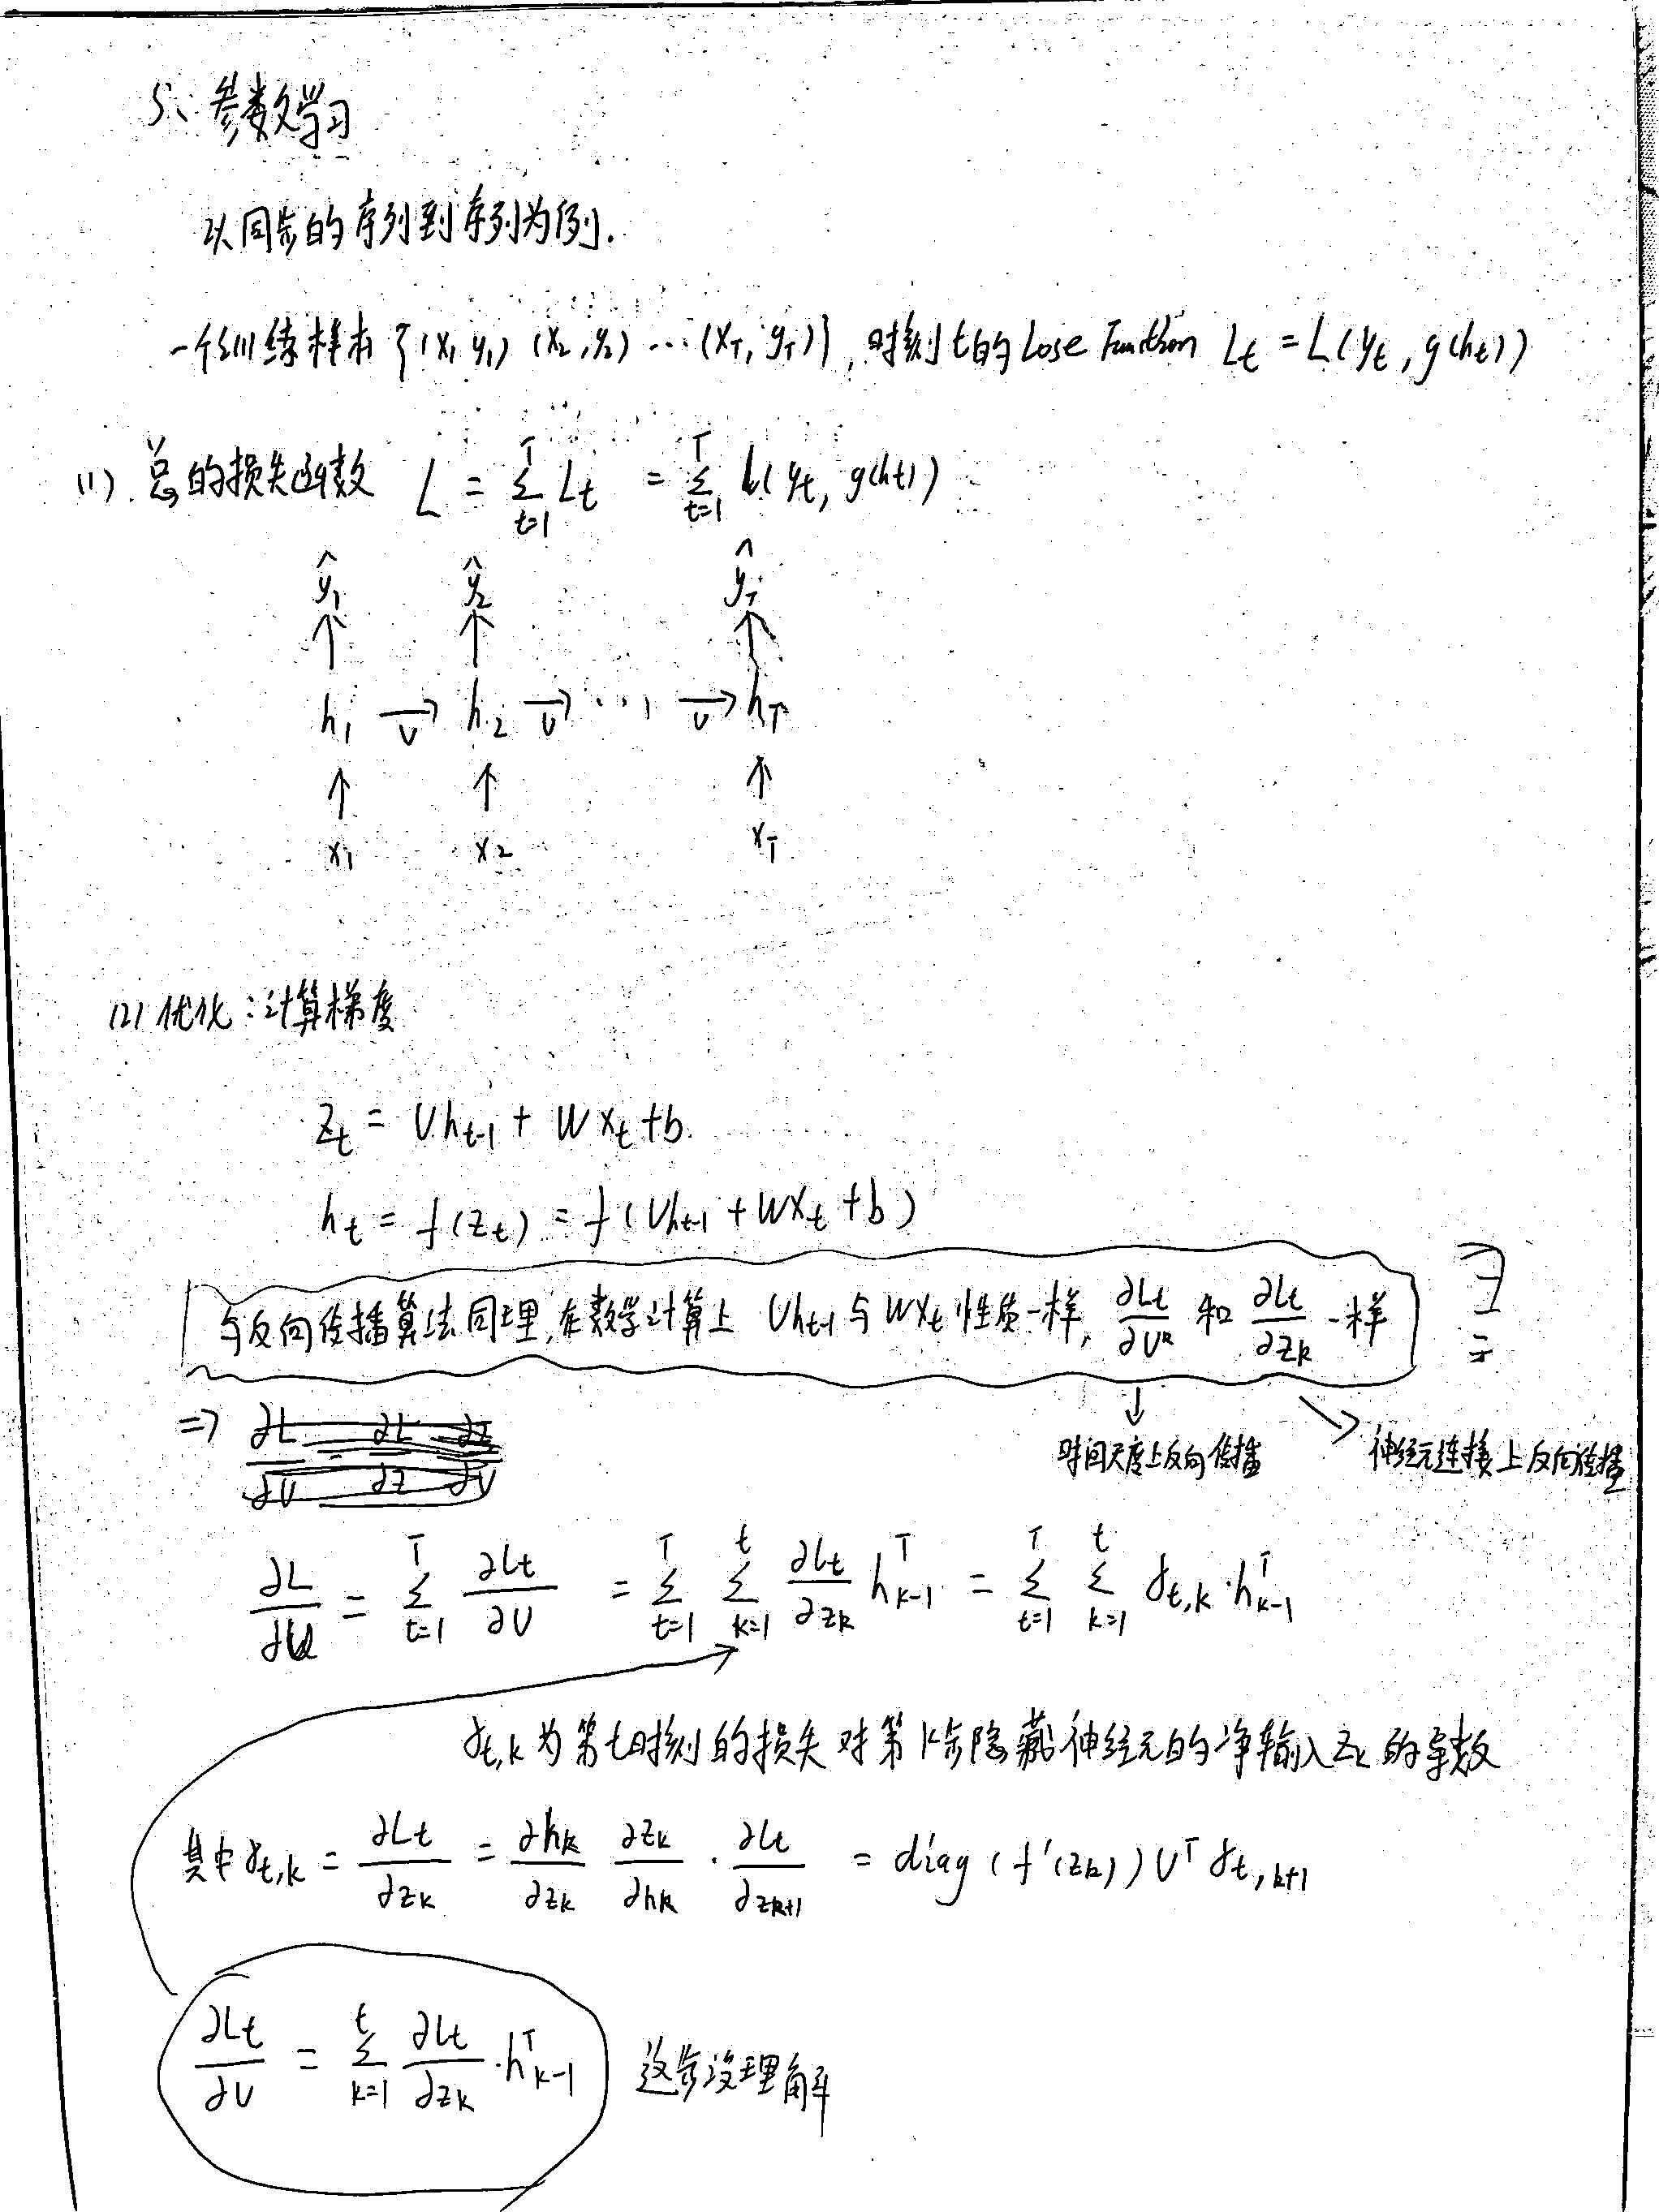 5、参数学习
以同步的序列到序列为例.
一个训练样本 {(x₁ y₁) (x₂, y₂) … (x_T, y_T)}, 时刻t的 Lose Function L_t = L(y_t, g(h_t))
(1). 总的损失函数 L = Σ_{t=1}^{T} L_t = Σ_{t=1}^{T} L(y_t, g(h_t))
ŷ₁ ŷ₂ ŷ_T
↑ ↑ ↑
h₁ →U h₂ →U … →U h_T
↑ ↑ ↑
x₁ x₂ x_T
(2) 优化：计算梯度
z_t = Uh_{t-1} + Wx_t + b.
h_t = f(z_t) = f(Uh_{t-1} + Wx_t + b)
与反向传播算法同理, 在数学计算上 Uh_{t-1} 与 Wx_t 性质一样, ∂L_t/∂U^k 和 ∂L_t/∂z_k 一样
⇒ ∂L/∂U = ∂L/∂z ∂z/∂U
时间尺度上反向传播
神经元连接上反向传播
∂L/∂U = Σ_{t=1}^{T} ∂L_t/∂U = Σ_{t=1}^{T} Σ_{k=1}^{t} ∂L_t/∂z_k h_{k-1}^T = Σ_{t=1}^{T} Σ_{k=1}^{t} δ_{t,k}·h_{k-1}^T
δ_{t,k} 为第t时刻的损失对第k步隐藏神经元的净输入z_k的导数
其中 δ_{t,k} = ∂L_t/∂z_k = ∂h_k/∂z_k ∂z_k/∂h_k · ∂L_t/∂z_{k+1} = diag(f'(z_k)) U^T δ_{t,k+1}
∂L_t/∂U = Σ_{k=1}^{t} ∂L_t/∂z_k · h_{k-1}^T 这步没理解